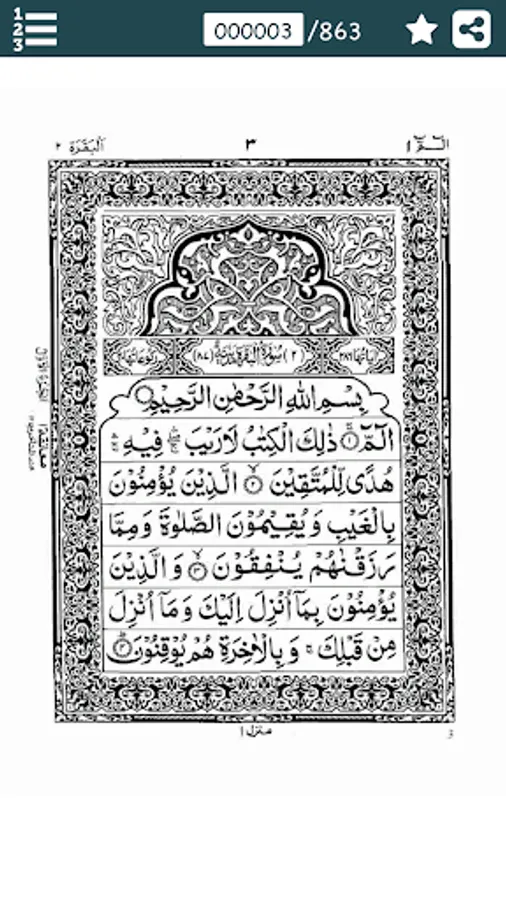 1
2
3
000003 /863
الٓـمّٓ ۱
۳
اَلْبَقَرَة ۲
اٰیاتُهَا ۲۸۶
(۲) سُوْرَةُ الْبَقَرَةِ مَدَنِيَّةٌ (۸۷)
رُكُوْعَاتُهَا ۴۰
بِسْمِ اللّٰهِ الرَّحْمٰنِ الرَّحِيْمِ
الٓمّٓ ۝۱ ذٰلِكَ الْكِتٰبُ لَا رَيْبَ ۛۖ فِيْهِ ۛۚ
هُدًى لِّلْمُتَّقِيْنَ ۝۲ الَّذِيْنَ يُؤْمِنُوْنَ
بِالْغَيْبِ وَيُقِيْمُوْنَ الصَّلٰوةَ وَمِمَّا
رَزَقْنٰهُمْ يُنْفِقُوْنَ ۝۳ وَالَّذِيْنَ
يُؤْمِنُوْنَ بِمَاۤ اُنْزِلَ اِلَيْكَ وَمَاۤ اُنْزِلَ
مِنْ قَبْلِكَ ۚ وَبِالْاٰخِرَةِ هُمْ يُوْقِنُوْنَ ۝۴
منزل ۱
3